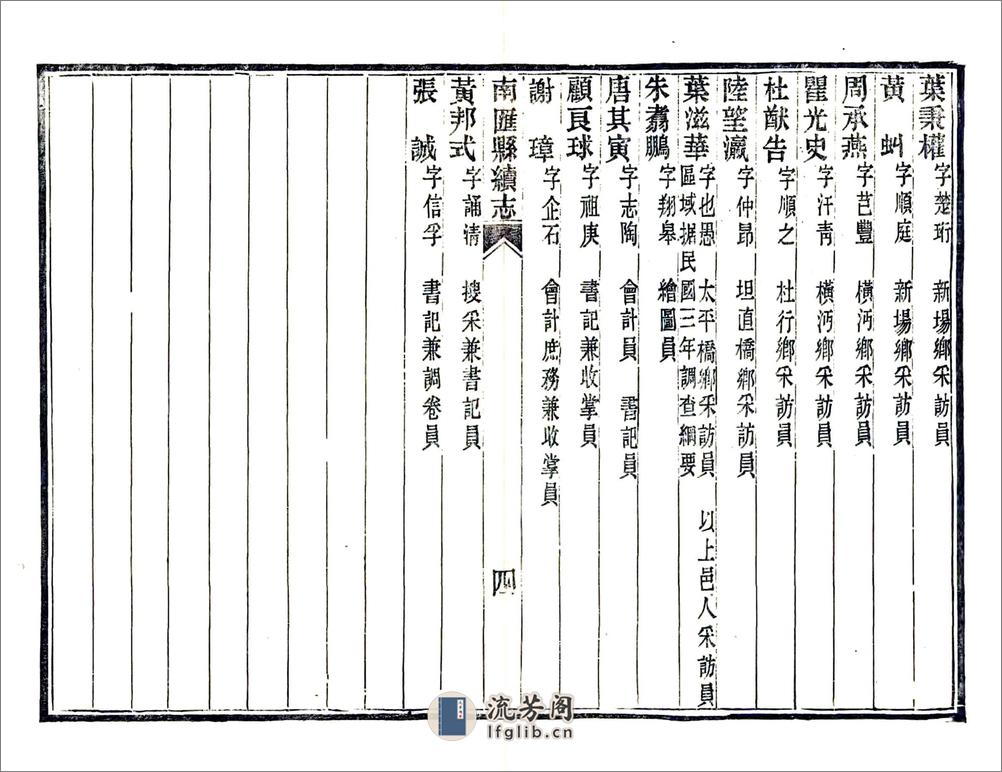 葉秉權 字楚珩 新場鄉采訪員
黃虯 字順庭 新場鄉采訪員
周承燕 字芑豐 橫沔鄉采訪員
瞿光史 字汗青 橫沔鄉采訪員
杜猷告 字順之 杜行鄉采訪員
陸望瀛 字仲昂 坦直橋鄉采訪員
葉滋華 字也愚 太平橋鄉采訪員 以上邑人采訪員
區域據民國三年調查綱要
朱翥鵬 字翔皋 繪圖員
唐其寅 字志陶 會計員 書記員
顧良球 字祖庚 書記兼收掌員
謝璋 字企石 會計庶務兼收掌員
南匯縣續志 四
黃邦式 字誦清 搜采兼書記員
張誠 字信孚 書記兼調卷員
流芳阁
lfglib.cn